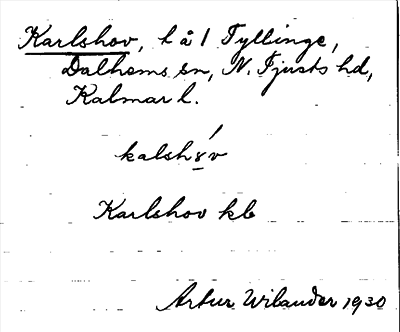 Karlshov, l å 1 Tyllinge,
Dalhems sn, N. Tjusts hd,
Kalmar l.
kalshọ́v
Karlshov kb
Artur Wilander 1930